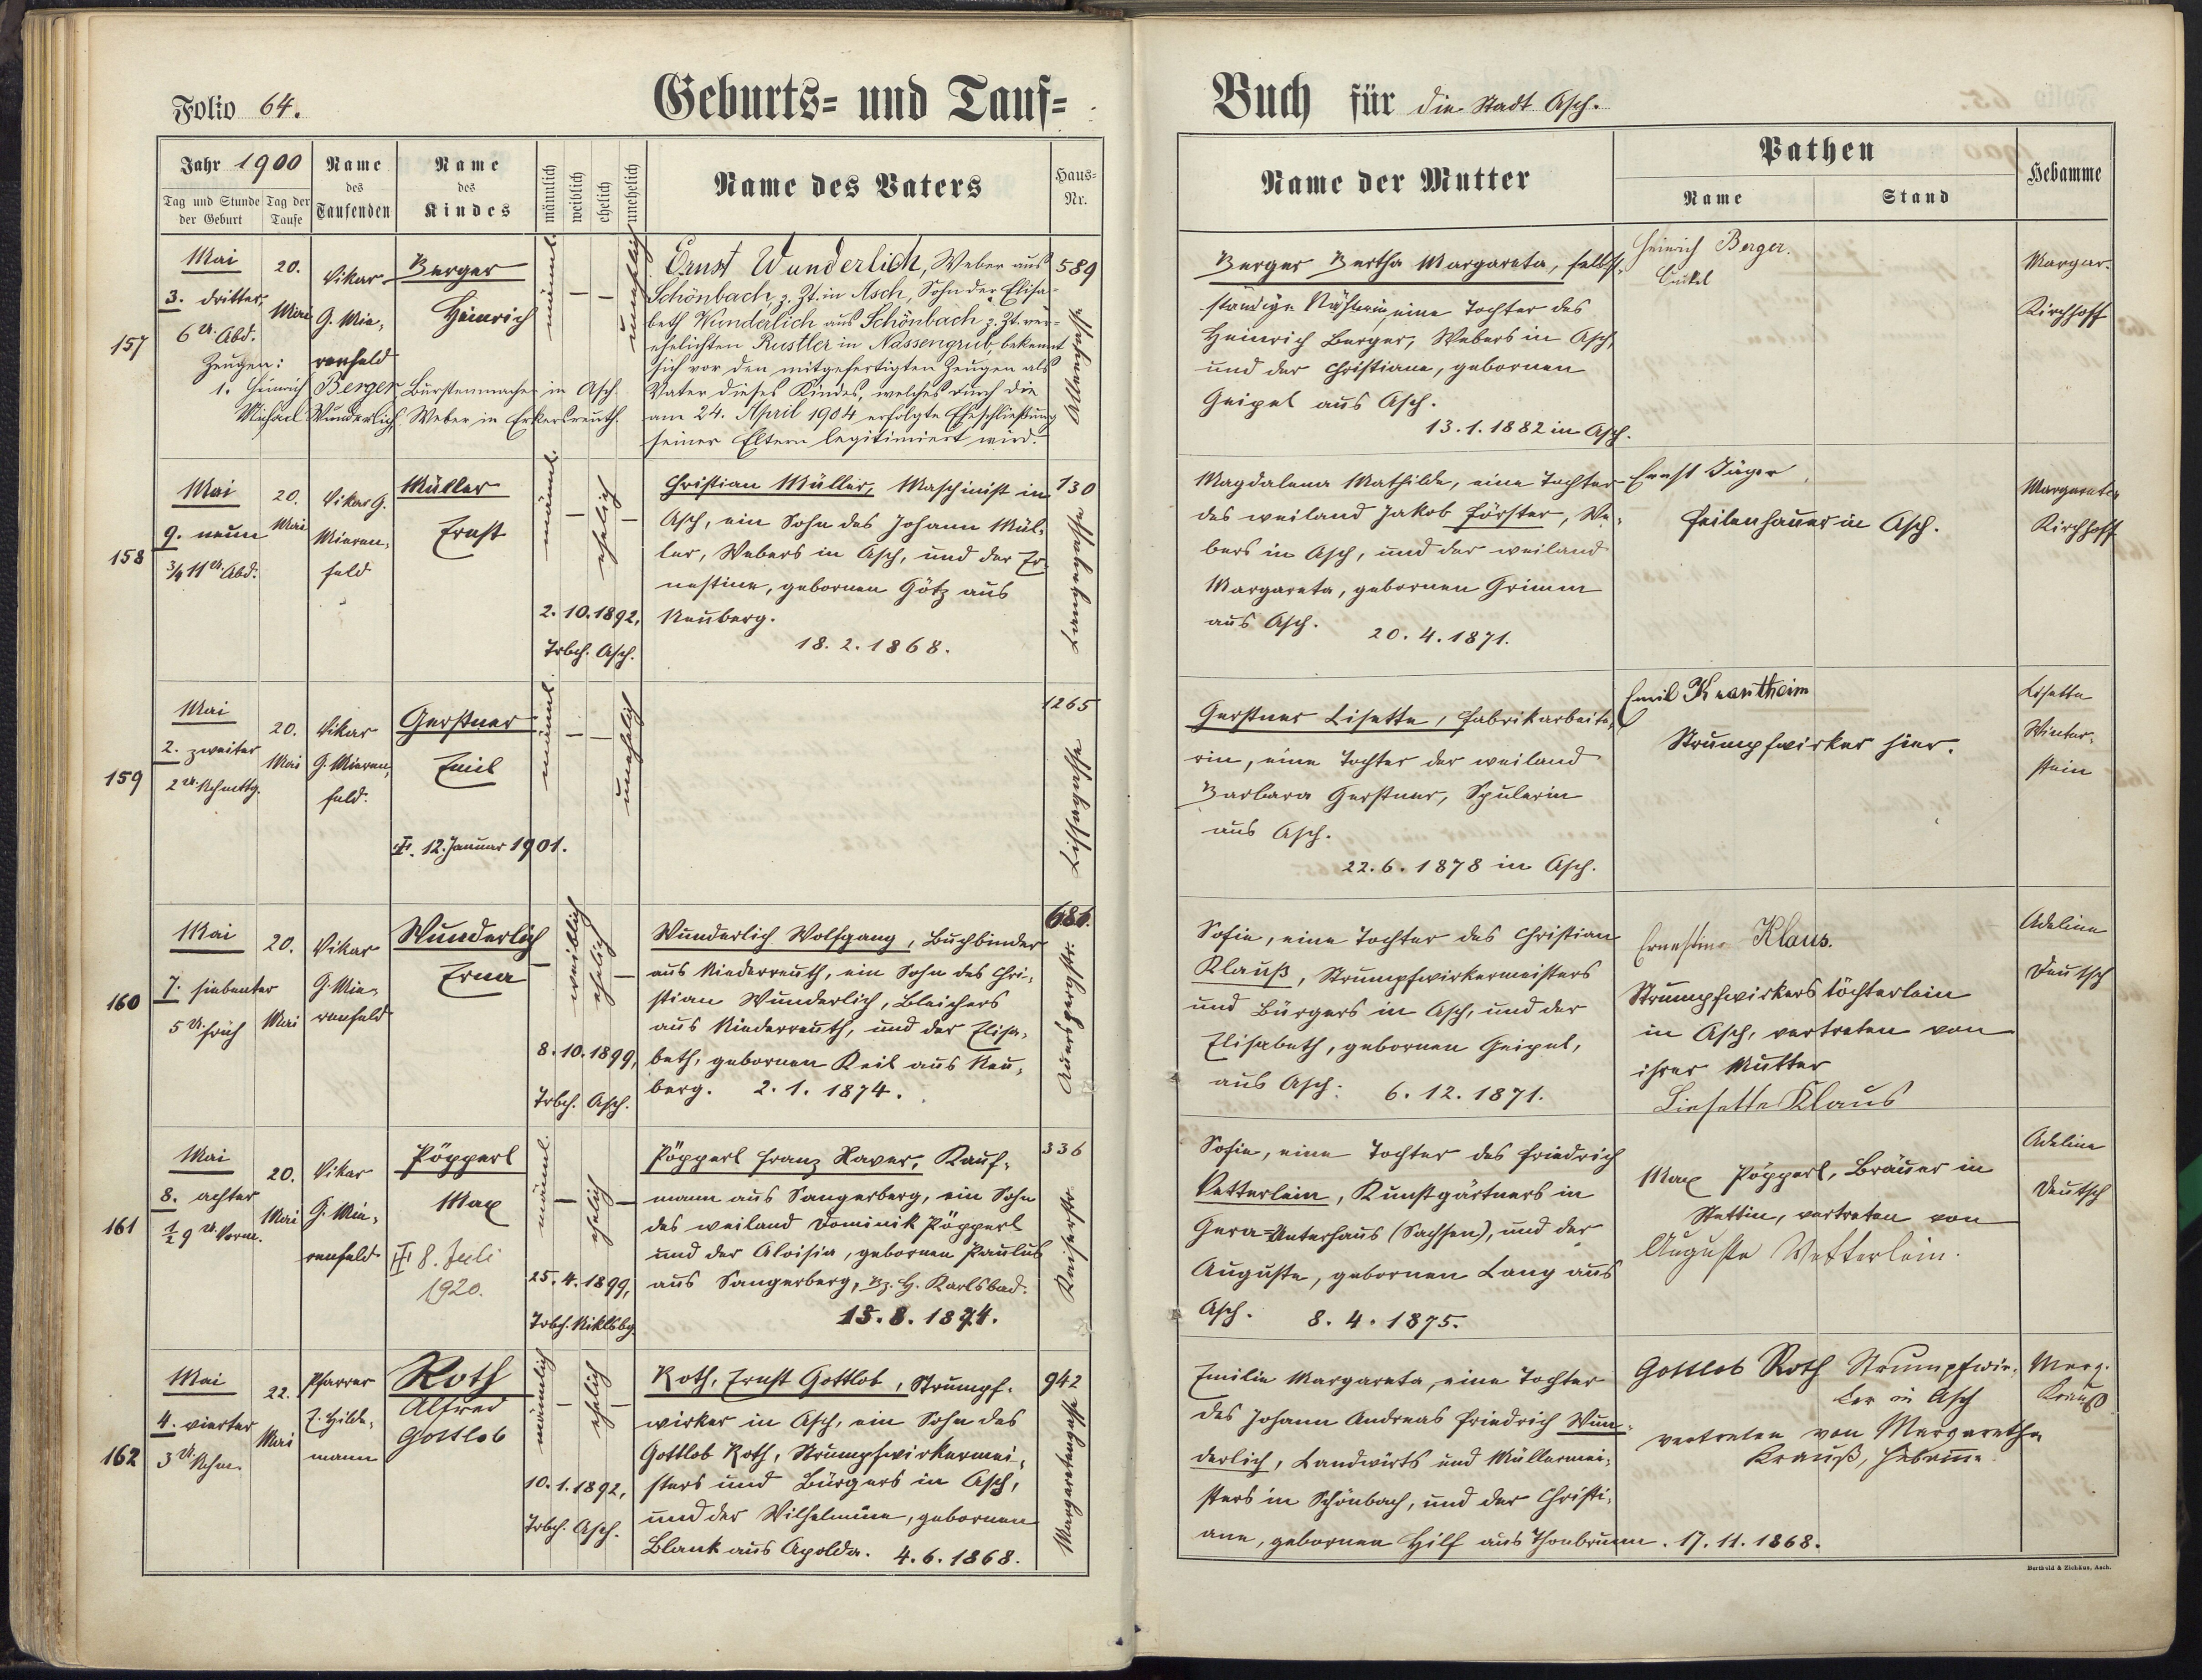 Folio 64.
Geburts- und Tauf-
Jahr 1900
Tag und Stunde der Geburt
Tag der Taufe
Name des Taufenden
Name des Kindes
männlich
weiblich
ehelich
unehelich
Name des Vaters
Haus-Nr.
157
Mai
3. dritter
6 U. Abd.
Zeugen:
1. Heinrich Berger Bürstenmacher in Asch.
Michael Wunderlich Weber in Erkersreuth.
20.
Mai
Vikar
G. Mie-
renfeld
Berger
Heinrich
männl.
—
—
unehelich
Ernst Wunderlich, Weber aus
Schönbach, z. Zt. in Asch, Sohn der Elisa-
beth Wunderlich aus Schönbach z. Zt. ver-
ehelichten Rustler in Nassengrub, bekennt
sich vor den mitgefertigten Zeugen als
Vater dieses Kindes, welches durch die
am 24. April 1904 erfolgte Eheschließung
seiner Eltern legitimiert wird.
589
158
Mai
9. neun
3/4 11 U. Abd.
20.
Mai
Vikar G.
Mieren-
feld
Müller
Ernst
männl.
—
ehelich
—
2. 10. 1892,
Trbch. Asch.
Christian Müller, Maschinist in
Asch, ein Sohn des Johann Mül-
ler, Webers in Asch, und der Er-
nestine, gebornen Götz aus
Neuberg.
18. 2. 1868.
130
Langegasse
159
Mai
2. zweiter
2 U. Nchmttg.
20.
Mai
Vikar
G. Mieren-
feld.
Gerstner
Emil
12. Januar 1901.
männl.
—
—
unehelich
1265
160
Mai
7. siebenter
5 U. früh
20.
Mai
Vikar
G. Mie-
renfeld
Wunderlich
Erna
—
weiblich
ehelich
—
8. 10. 1899,
Trbch. Asch.
Wunderlich Wolfgang, Buchbinder
aus Niederreuth, ein Sohn des Chri-
stian Wunderlich, Bleichers
aus Niederreuth, und der Elisa-
beth, gebornen Keil aus Neu-
berg. 2. 1. 1874.
Auerspergstr.
161
Mai
8. achter
1/2 9 U. Vorm.
20.
Mai
Vikar
G. Mie-
renfeld
Pöpperl
Max
8. Juli
1920.
männl.
—
ehelich
—
25. 4. 1899,
Trbch. Niklsbg.
Pöpperl Franz Xaver, Kauf-
mann aus Sangerberg, ein Sohn
des weiland Dominik Pöpperl
und der Aloisia, gebornen Paulus
aus Sangerberg, Bz. H. Karlsbad.
15. 8. 1874.
336
Kaiserstr.
162
Mai
4. vierter
3 U. Nchm.
22.
Mai
Pfarrer
E. Hilde-
mann
Roth
Alfred
Gottlob
männlich
—
ehelich
—
10. 1. 1892,
Trbch. Asch.
Roth, Ernst Gottlob, Strumpf-
wirker in Asch, ein Sohn des
Gottlob Roth, Strumpfwirkermei-
sters und Bürgers in Asch,
und der Wilhelmine, gebornen
Blank aus Apolda. 4. 6. 1868.
942
Margaretengasse
Buch für die Stadt Asch.
Name der Mutter
Pathen
Name
Stand
Hebamme
Berger Bertha Margareta, selbst-
ständige Näherin, eine Tochter des
Heinrich Berger, Webers in Asch,
und der Christiane, gebornen
Geipel aus Asch.
13. 1. 1882 in Asch.
Heinrich Berger.
Margar.
Kirchhoff
Magdalena Mathilde, eine Tochter
des weiland Jakob Förster, We-
bers in Asch, und der weiland
Margareta, gebornen Grimm
aus Asch.
20. 4. 1871.
Ernst Jäger
Feilenhauer in Asch.
Margareta
Kirchhoff
Gerstner Lisette, Fabrikarbeite-
rin, eine Tochter der weiland
Barbara Gerstner, Spulerin
aus Asch.
22. 6. 1878 in Asch.
Emil Krautheim
Strumpfwirker hier.
Lisette
Winter-
stein
Sofie, eine Tochter des Christian
Klauß, Strumpfwirkermeisters
und Bürgers in Asch, und der
Elisabeth, gebornen Geipel,
aus Asch. 6. 12. 1871.
Ernestine Klaus.
Strumpfwirkerstöchterlein
in Asch, vertreten von
ihrer Mutter
Liesette Klaus
Adeline
Deutsch
Sofie, eine Tochter des Friedrich
Vetterlein, Kunstgärtners in
Gera-Unterhaus (Sachsen), und der
Auguste, gebornen Lang aus
Asch. 8. 4. 1875.
Max Pöpperl, Bräuer in
Stettin, vertreten von
Auguste Vetterlein.
Adeline
Deutsch
Emilie Margareta, eine Tochter
des Johann Andreas Friedrich Wun-
derlich, Landwirts und Müllermei-
sters in Schönbach, und der Christi-
ane, gebornen Hilf aus Thonbrunn. 17. 11. 1868.
Gottlob Roth Strumpfwir-
ker in Asch
vertreten von Margaretha
Krauß, Hebamme
Marg.
Krauß
Berthold & Zichäus, Asch.